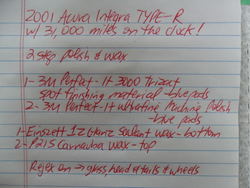 2001 Acura Integra TYPE-R
w/ 31,000 miles on the clock!
2 step polish & wax
1- 3M Perfect-It 3000 Trizact
spot finishing material - blue pads
2- 3M Perfect-It Ultrafine Machine Polish
- blue pads
1- Einszett 1Z Glanz Sealant wax - bottom
2- P21S Carnauba wax - top
Rejex on → glass, head & tails & wheels